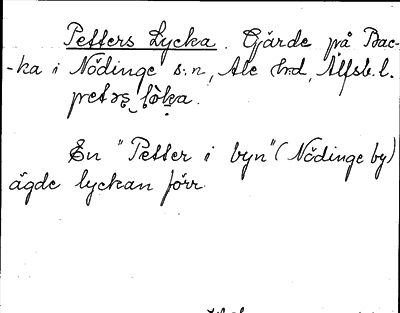 Petters Lycka. Gärde på Bac-
-ka i Nödinge s:n, Ale h:d, Älfsb. l.
En "Petter i byn" (Nödinge by)
ägde lyckan förr